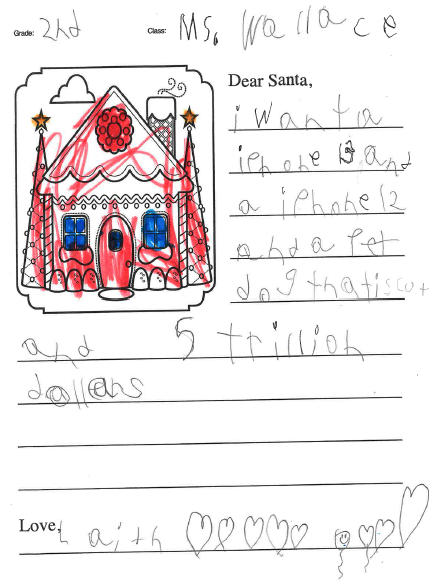 Grade: 2nd Class: Ms. Wallace
Dear Santa,
i want a
iphone and
a iphone 12
and a pet
dog that is cut
and 5 trillion
dollars
Love, haith